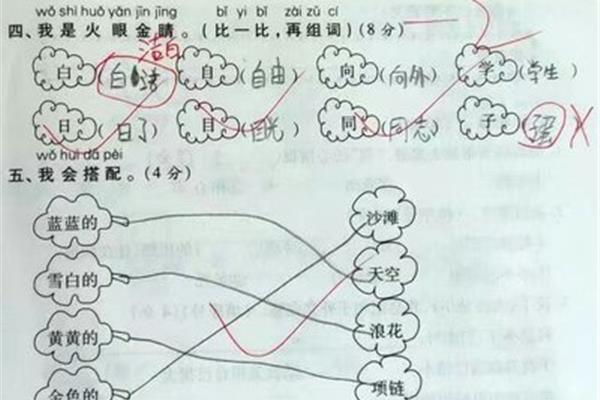 wǒ shì huǒ yǎn jīn jīng bǐ yì bǐ zài zǔ cí
四、我是火眼金睛。(比一比,再组词)(8分)
洁白
白(白 ) 自(自由) 向(向外) 学(学生)
日(日了) 目(目光) 同(同志) 子( )
wǒ huì dā pèi
五、我会搭配。(4分)
蓝蓝的 沙滩
雪白的 天空
黄黄的 浪花
金色的 项链